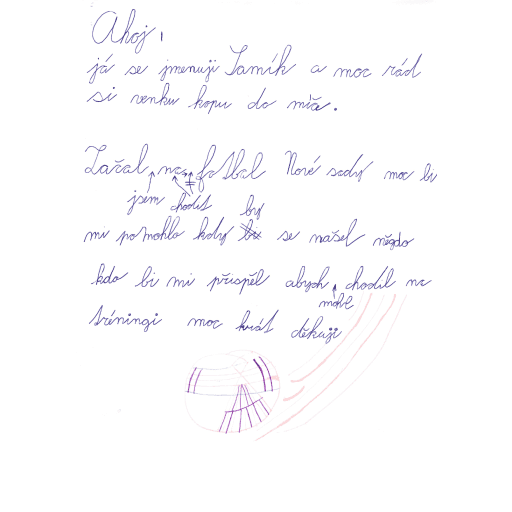 Ahoj,
já se jmenuji Tamík a moc rád
si venku kopu do míče.
Začal na fotbal Nové sady moc bi
jsem chodit by
mi pomohlo kdyby se našel někdo
kdo bi mi přispěl abych chodil na
mohl
tréningi moc krát děkuji